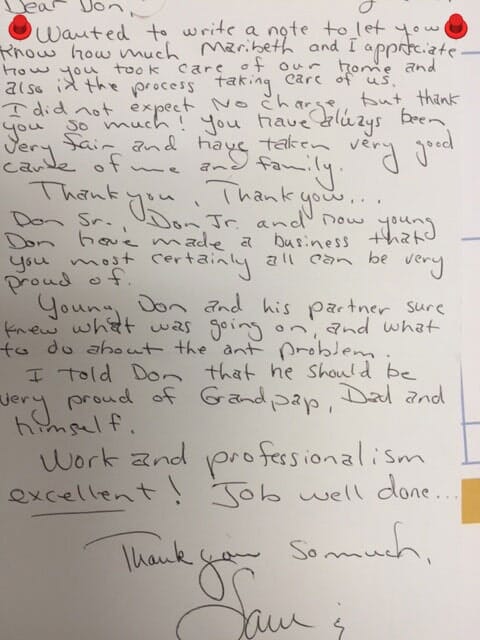 Dear Don,
Wanted to write a note to let you
know how much Maribeth and I appreciate
how you took care of our home and
also in the process taking care of us.
I did not expect No charge, but thank
you so much! You have always been
very fair and have taken very good
care of me and family.
Thank you, Thank you...
Don Sr., Don Jr. and now young
Don have made a business that
you most certainly all can be very
proud of.
Young Don and his partner sure
knew what was going on, and what
to do about the ant problem.
I told Don that he should be
very proud of Grandpap, Dad and
himself.
Work and professionalism
excellent! Job well done...
Thank you so much,